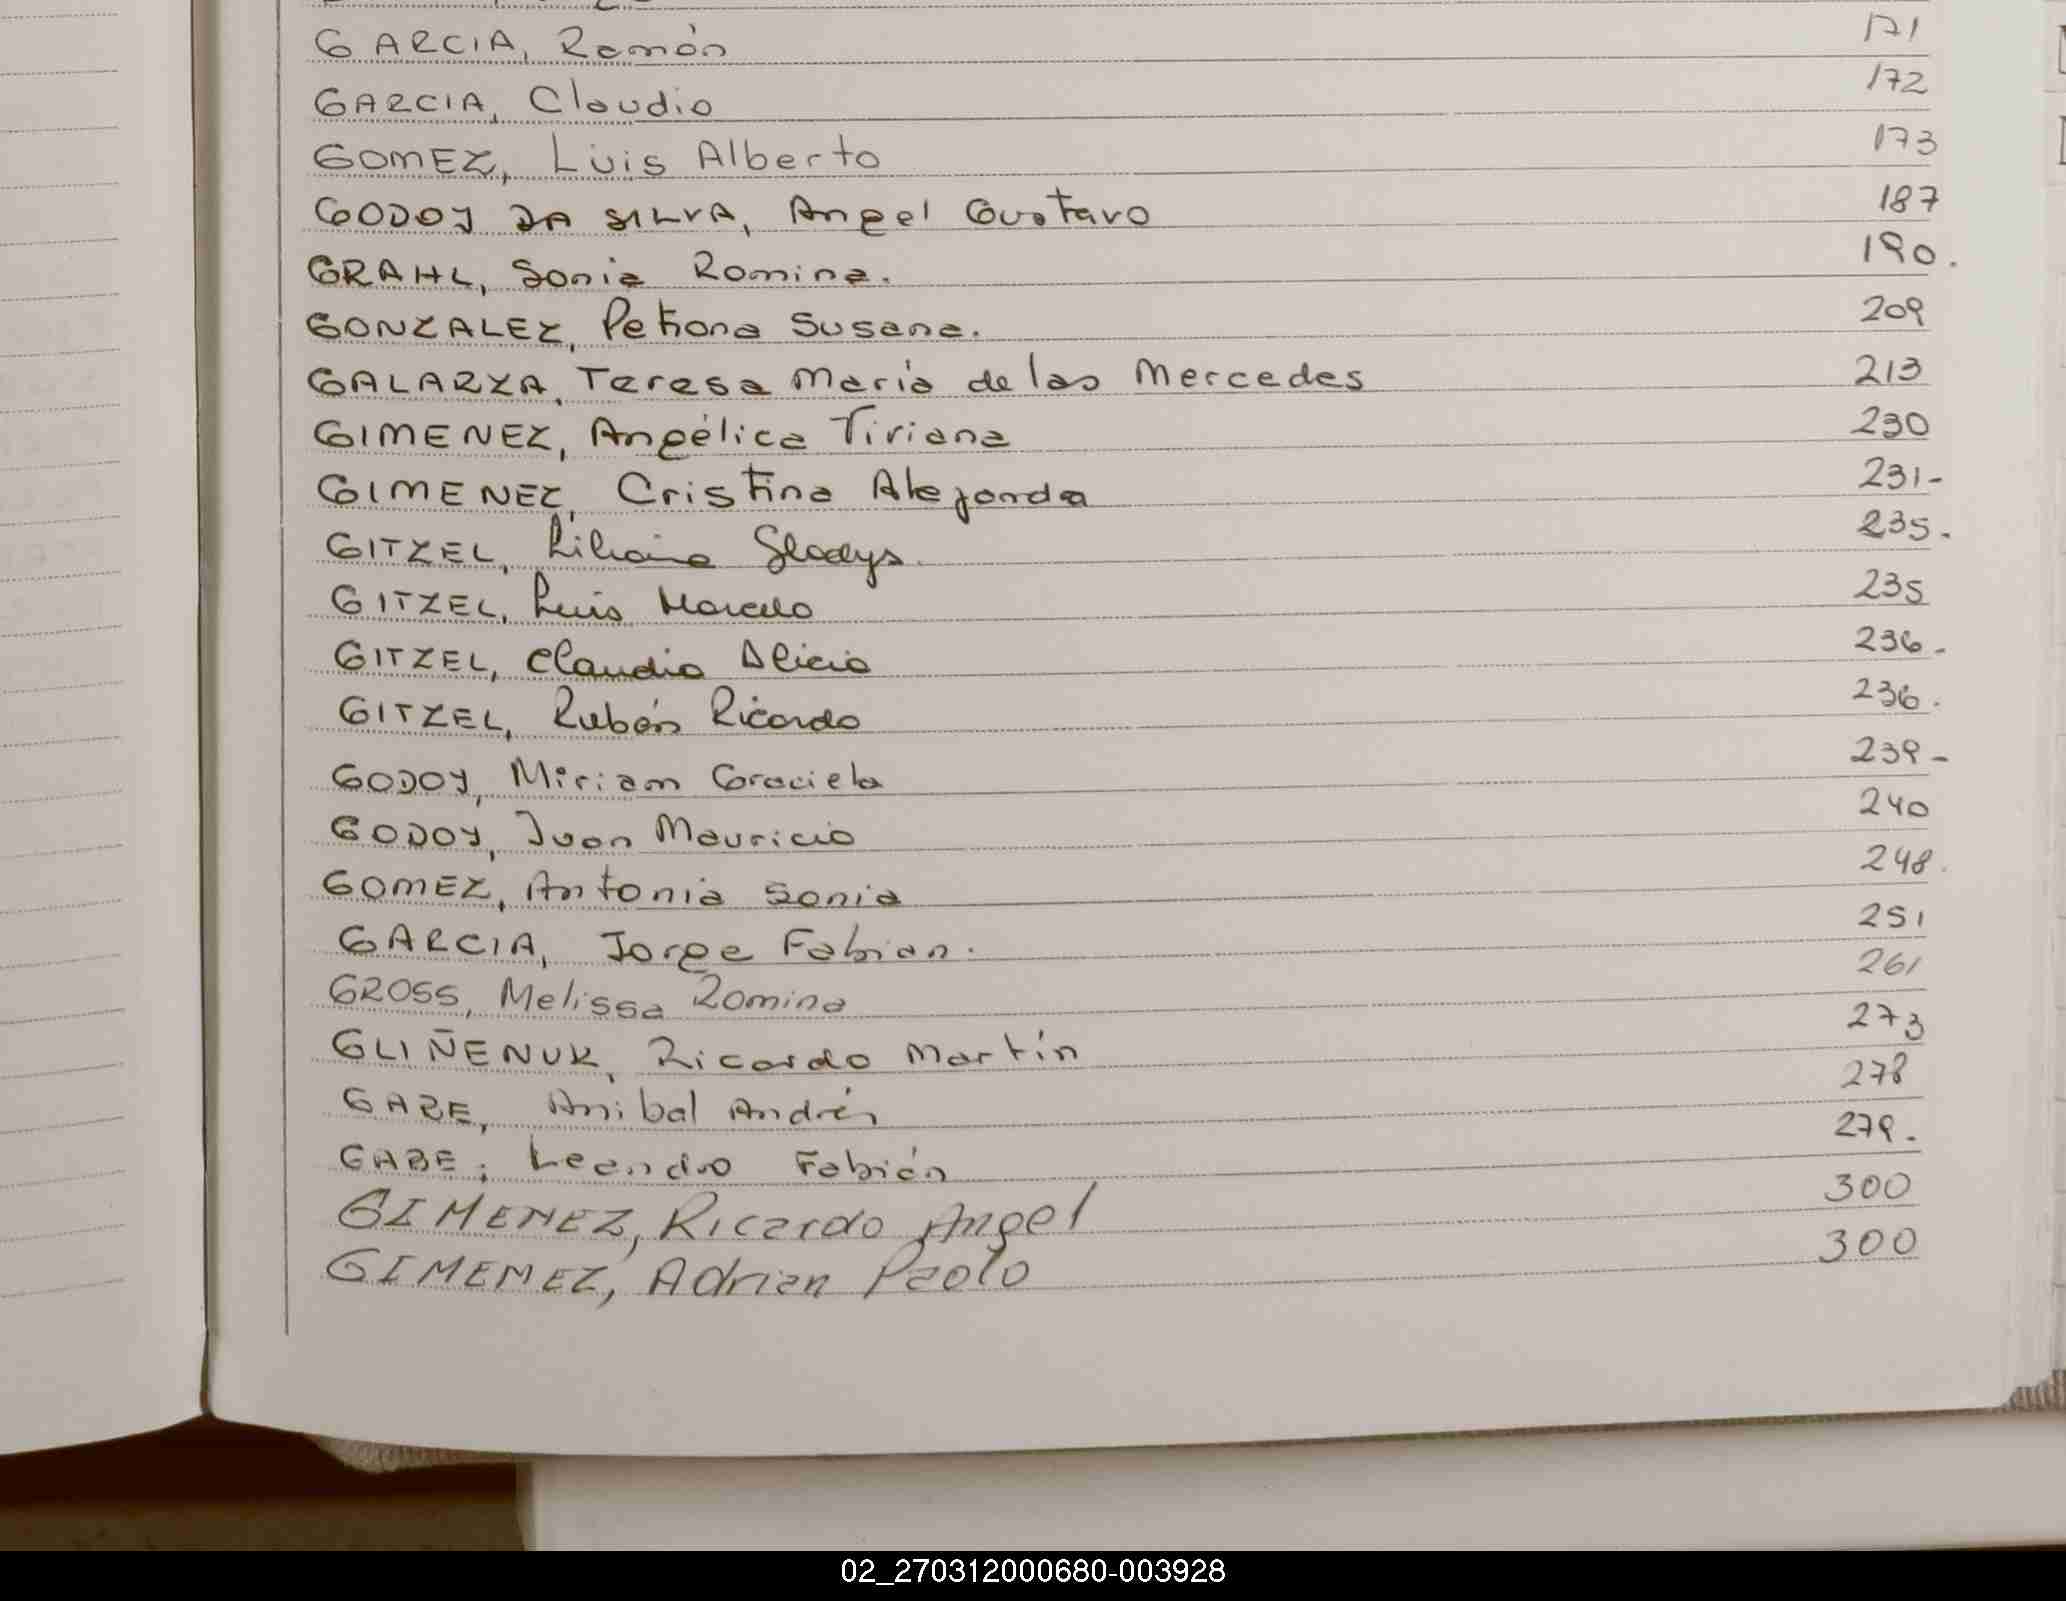 GARCIA, Ramón 171
GARCIA, Claudio 172
GOMEZ, Luis Alberto 173
GODOY DA SILVA, Angel Gustavo 187
GRAHL, Sonia Romina. 190.
GONZALEZ, Petrona Susana. 209
GALARZA, Teresa María de las Mercedes 213
GIMENEZ, Angélica Viviana 230
GIMENEZ, Cristina Alejandra 231-
GITZEL, Liliana Gladys. 235.
GITZEL, Luis Marcelo 235
GITZEL, Claudia Alicia 236-
GITZEL, Rubén Ricardo 236.
GODOY, Miriam Graciela 239-
GODOY, Juan Mauricio 240
GOMEZ, Antonia Sonia 248.
GARCIA, Jorge Fabian. 251
GROSS, Melissa Romina 261
GLIÑENUK, Ricardo Martín 273
GABE, Anibal Andrés 278
GABE, Leandro Fabián 279.
GIMENEZ, Ricardo Angel 300
GIMENEZ, Adrian Paolo 300
02_270312000680-003928